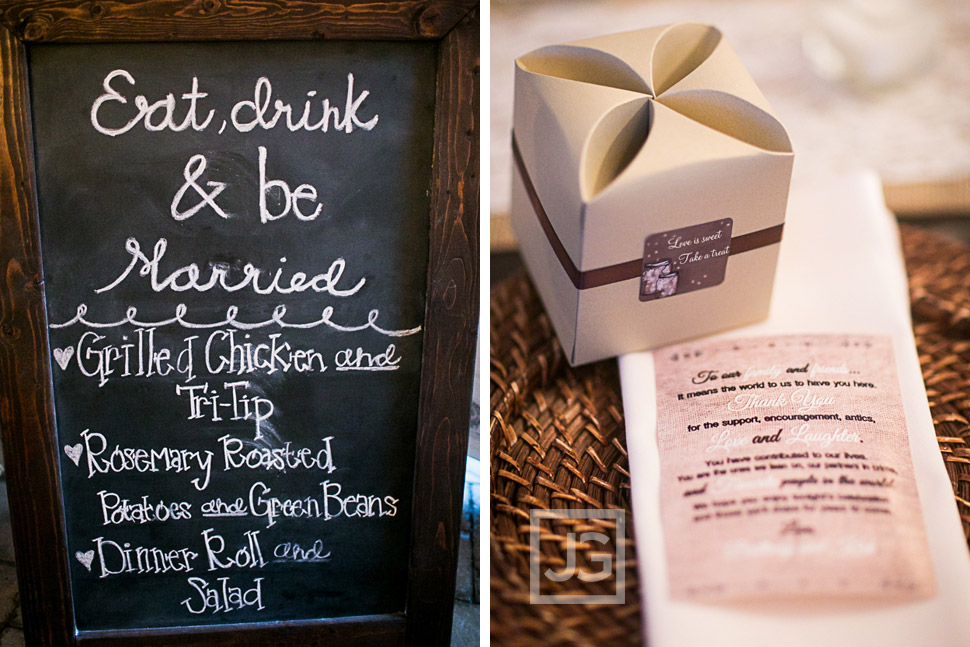 Eat, drink
& be
Married
Grilled Chicken and
Tri-Tip
Rosemary Roasted
Potatoes and Green Beans
Dinner Roll and
Salad
Love is sweet
Take a treat
To our family and friends...
It means the world to us to have you here.
Thank You
for the support, encouragement, antics,
Love and Laughter.
You have contributed to our lives.
You are the ones we lean on, our partners in crime,
and people in the world.
We hope you enjoy tonight's celebration
and
JG